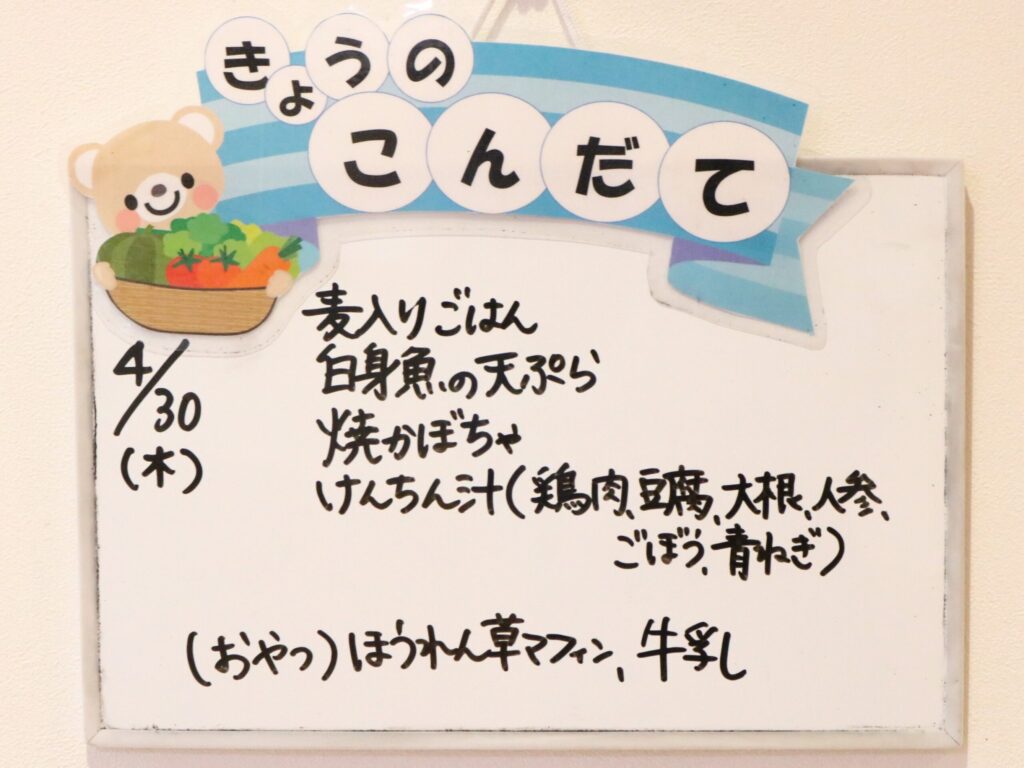 きょうの
こんだて
4/30
(木)
麦入りごはん
白身魚の天ぷら
焼かぼちゃ
けんちん汁(鶏肉、豆腐、大根、人参、
ごぼう、青ねぎ)
(おやつ)ほうれん草マフィン、牛乳